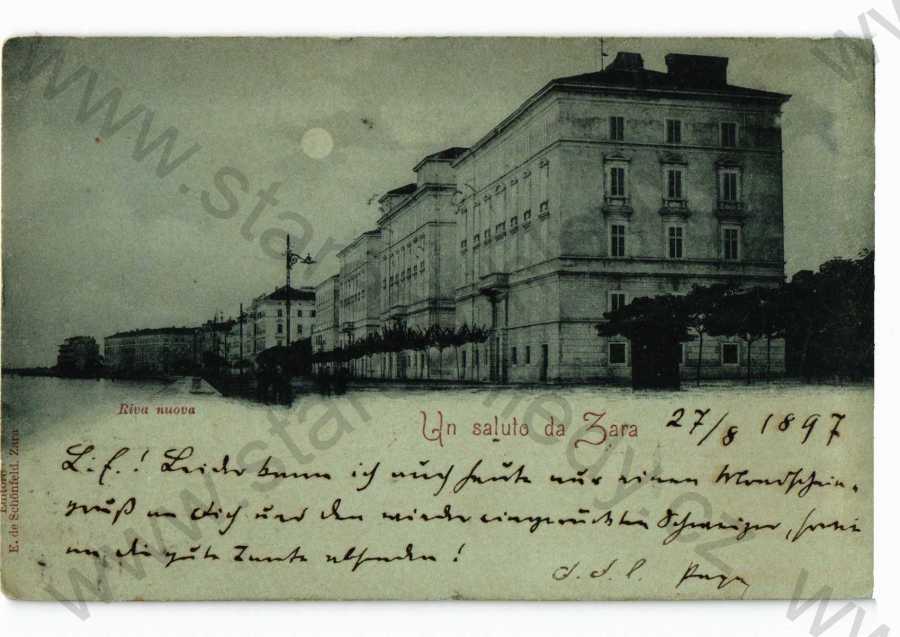 Riva nuova
Un saluto da Zara
27/8 1897
L. E.! Leider kann ich auch heute nur einen Mondschein-
gruß an Dich und den wieder eingerückten Schweizer, sowie
an die gute Tante absenden!
d. d. l. Papa
E. de Schönfeld, Zara